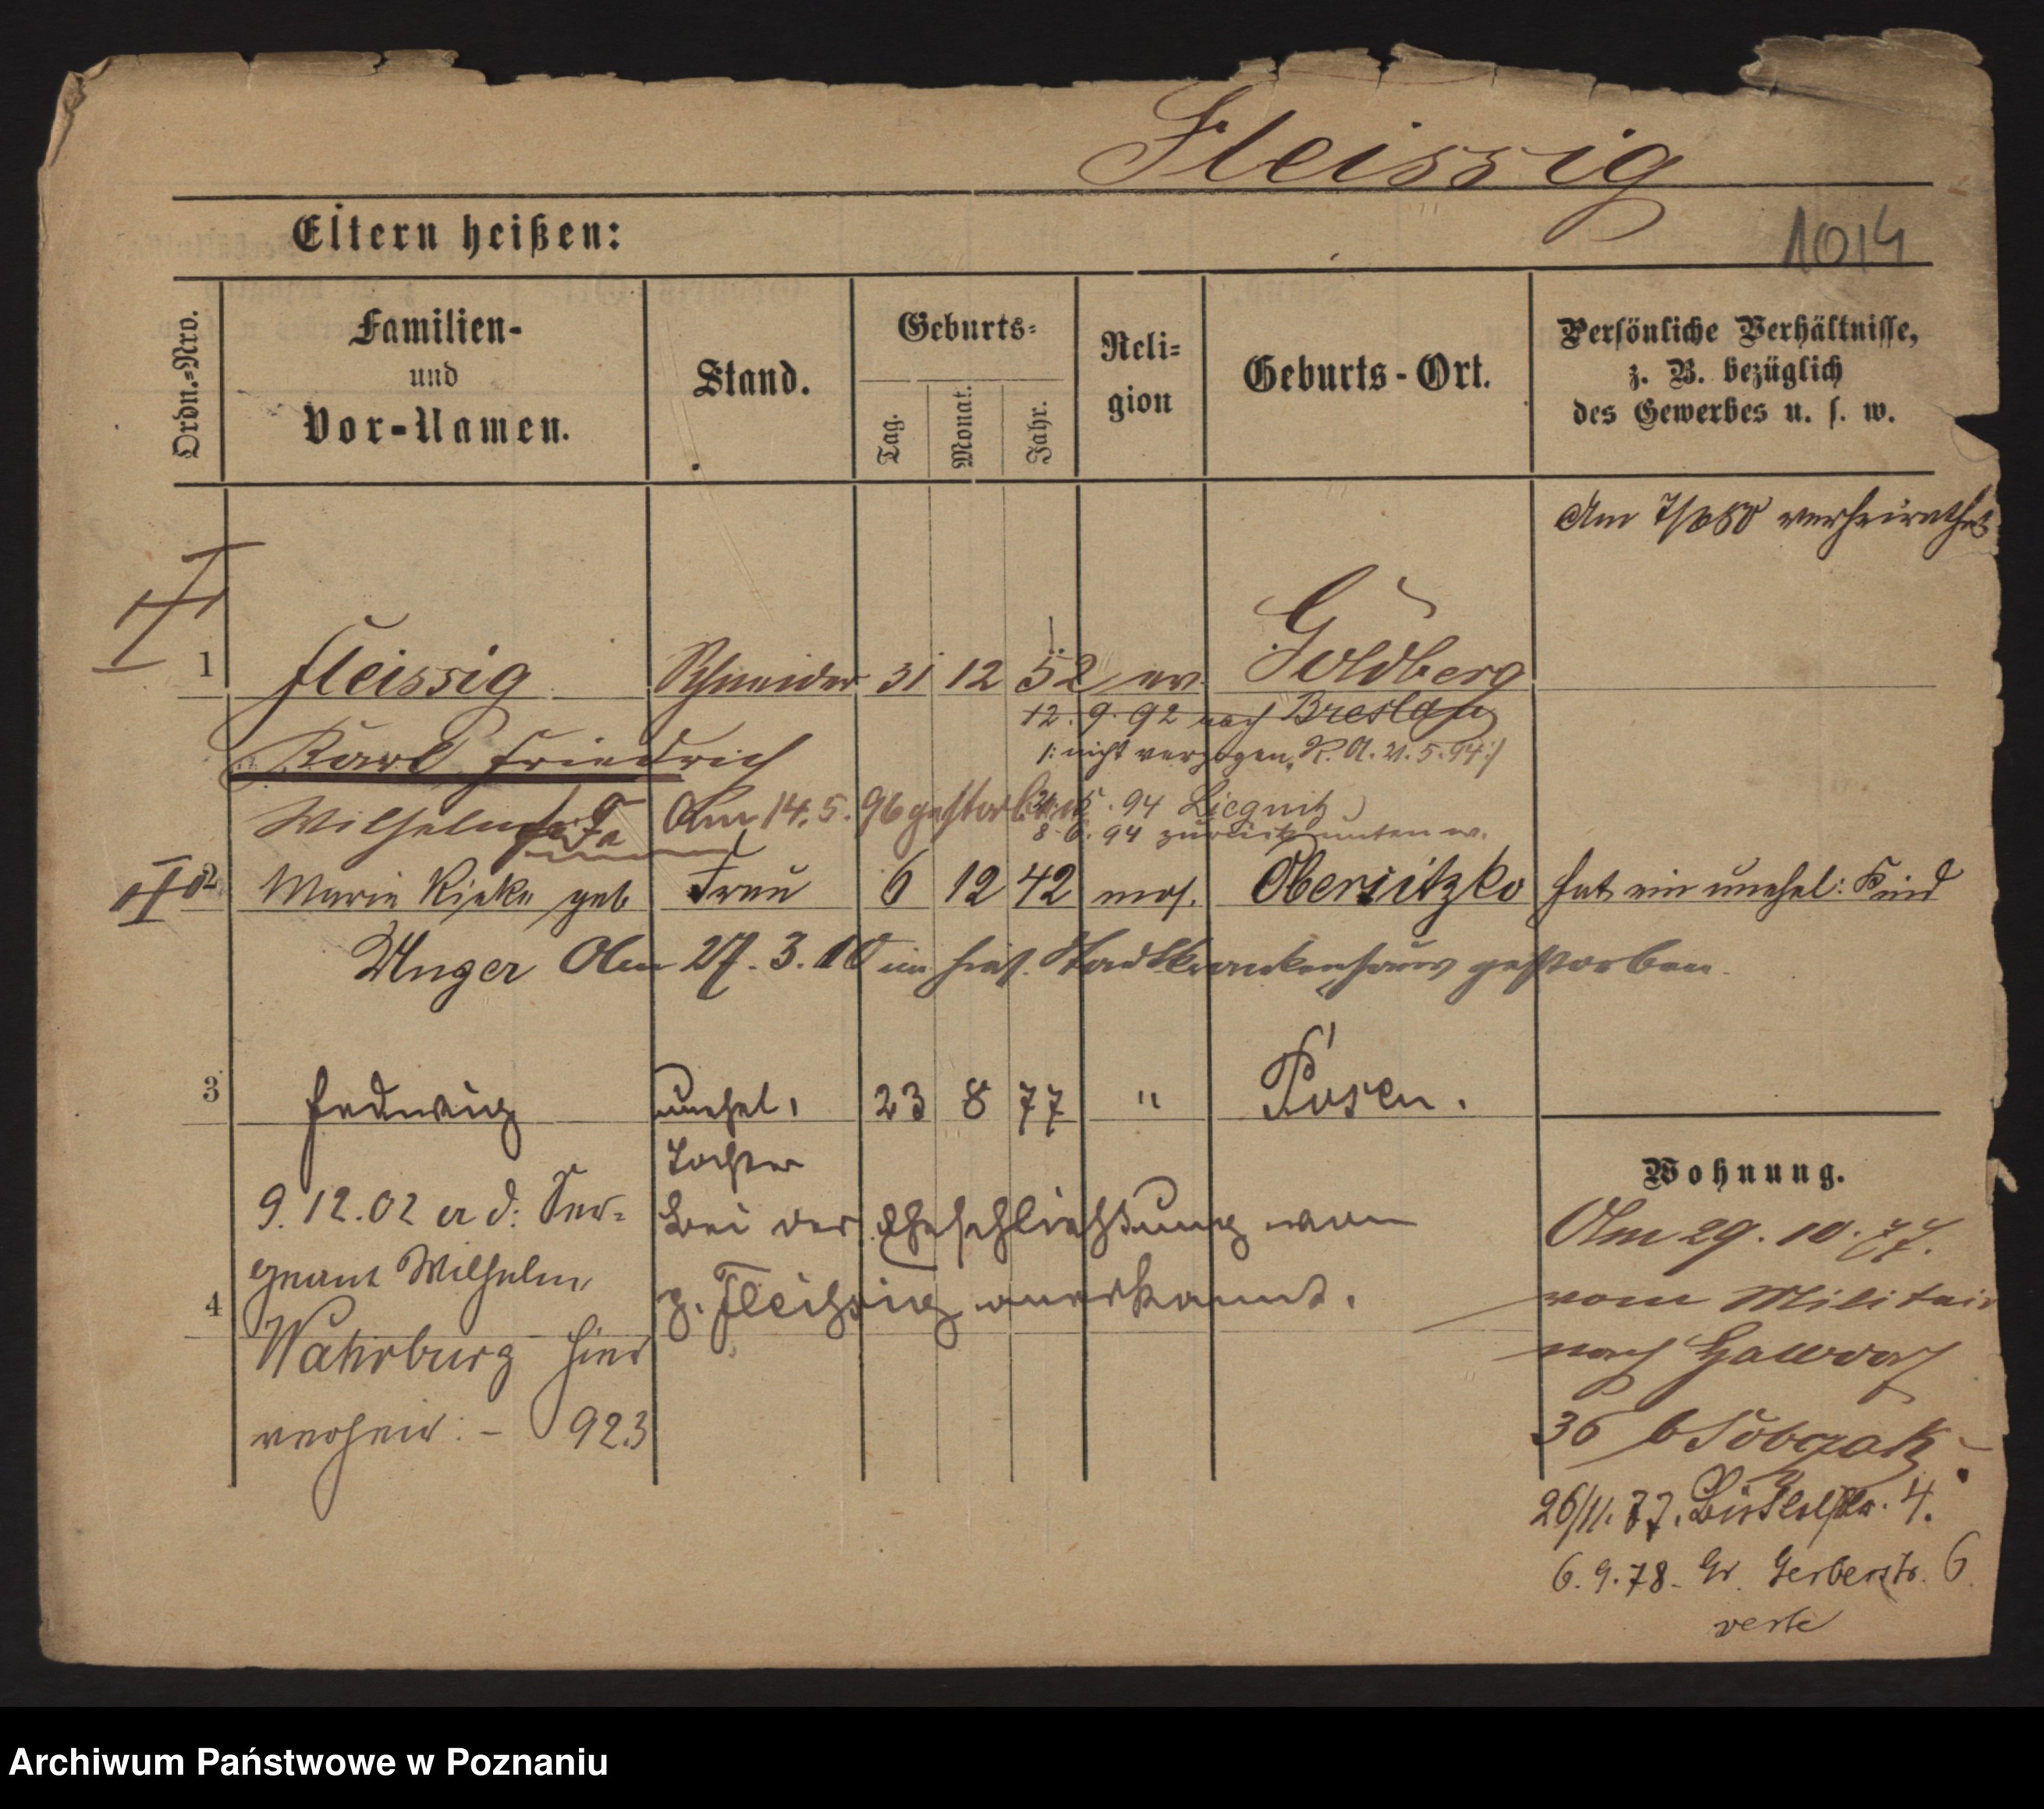 Fleissig
Eltern heißen:
1014
Ordn.=Nro.
Familien-
und
Vor-Namen.
Stand.
Geburts=
Tag.
Monat.
Jahr.
Reli=
gion
Geburts-Ort.
Persönliche Verhältnisse,
z. B. bezüglich
des Gewerbes u. s. w.
Am verheirathet
1 Fleissig Schneider 31 12 52 ev. Goldberg
12. 9. 92 nach Breslau
Karl Friedrich
/: nicht verzogen, R. A. 21. 5. 94 :/
Wilhelm Am 14. 5. 96 gestorben
5. 94 Liegnitz
8. 6. 94 zurück unten w.
2 Marie Rieke geb Frau 6 12 42 mos. Obersitzko hat ein unehel: Kind
Unger Am 27. 3. 10 im hies. Stadtkrankenhaus gestorben.
3 Hedwig unehel. 23 8 77 " Posen.
Tochter
9. 12. 02 a d: Ser=
geant Wilhelm
Wahrburg hier
verheir: - 923
bei der Eheschließung von
z. Fleissig anerkannt.
4
Wohnung.
Am 29. 10. 77.
vom Militair
nach
36 b Sobczak
26/11. 77. 4.
6. 9. 78. Gr. Gerberstr. 6.
verte
Archiwum Państwowe w Poznaniu